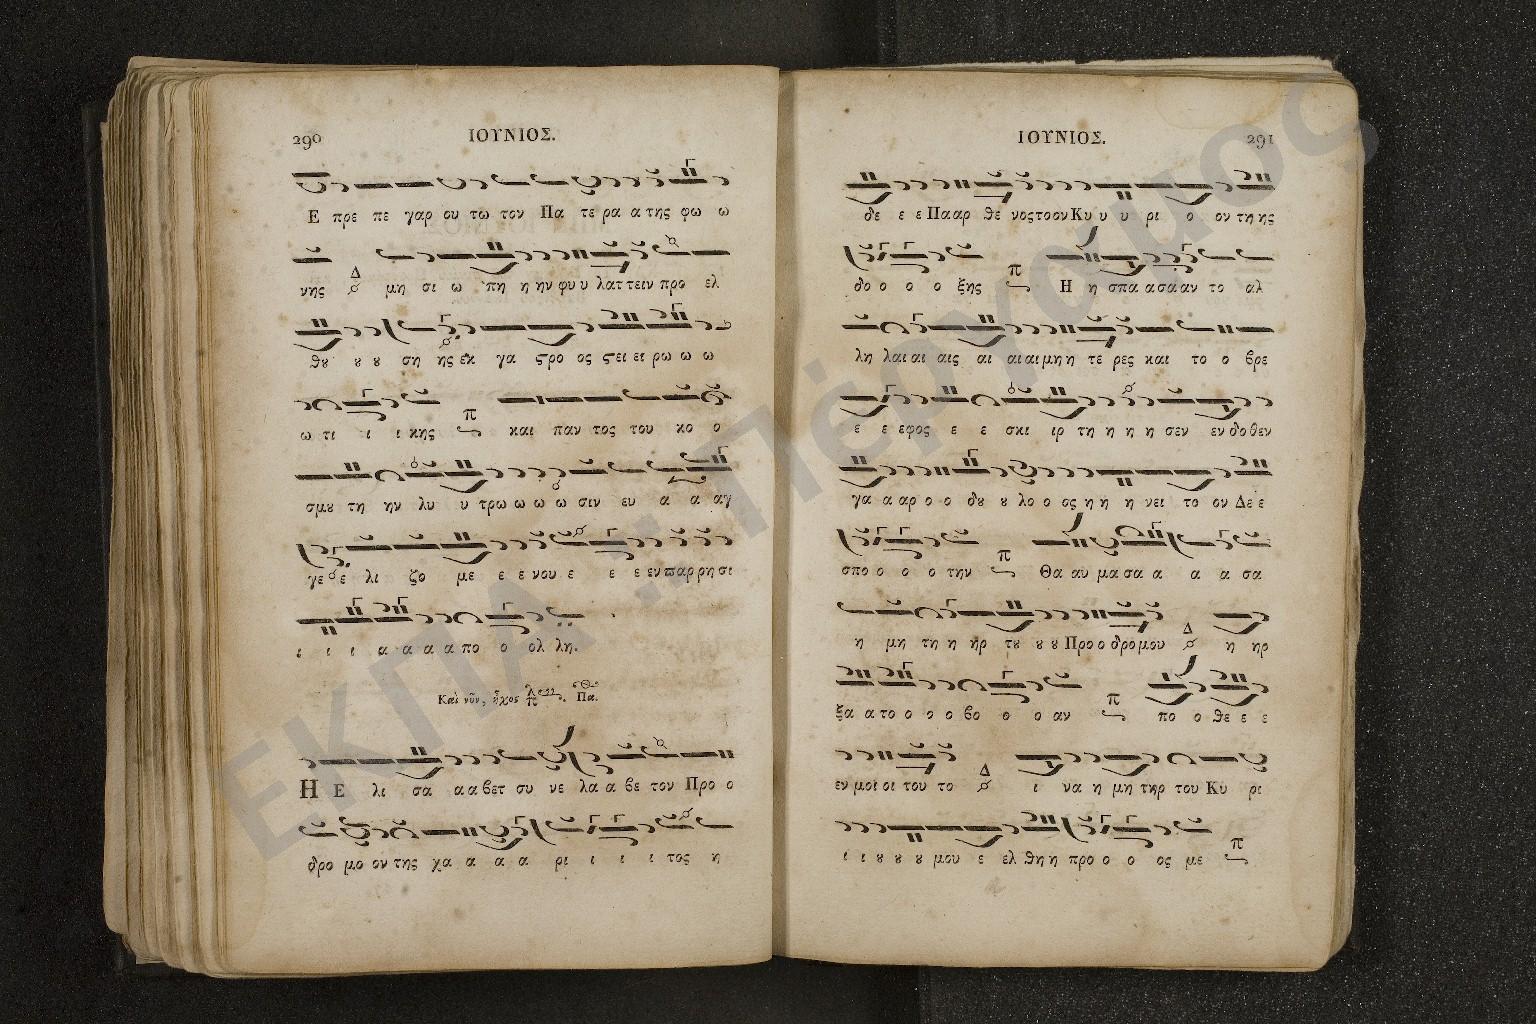 290 ΙΟΥΝΙΟΣ.
Ε πρε πε γαρ ου τω τον Πα τε ρα α της φω ω
νης Δ μη σι ω πη η ην φυ υ λατ τειν προ ελ
θȣ ȣ ȣ ση ης εκ γα ϛρο ος ϛει ει ρω ω ω
ω τι ι ι κης π και παν τος του κο ο
σμȣ τη ην λυ υ τρω ω ω ω σιν ευ α α αγ
γε ε λι ζο με ε ε νου ε ε ε εν παρ ρη σι
ι ι ι α α α α πο ο ολ λη.
Και νῦν, ἦχος πλ Πα.
Η Ε λι σα α α βετ συ νε λα α βε τον Προ ο
δρο μο ον της χα α α α ρι ι ι ι τος η
ΙΟΥΝΙΟΣ. 291
δε ε ε Πα αρ θε νος το ον Κυ υ υ ρι ο ον τη ης
δο ο ο ο ξης π Η η σπα α σα αν το αλ
λη λαι αι αις αι αι αι μη η τε ρες και το ο βρε
ε ε εφος ε ε σκι ιρ τη η η η σεν εν δο θεν
γα α αρ ο ο δȣ ȣ λο ο ος η η η νει το ον Δε ε
σπο ο ο ο την π Θα αυ μα σα α α α σα
η μη τη η ηρ τȣ ȣ ȣ Προ ο δρο μου Δ η ηρ
ξα α το ο ο ο βο ο ο αν π πο ο θε ε ε
εν μοι οι του το Δ ι να η μη τηρ του Κυ ρι
ι ι ȣ ȣ ȣ μου ε ελ θη η προ ο ο ος με π
ΕΚΠΑ :: Πέργαμος